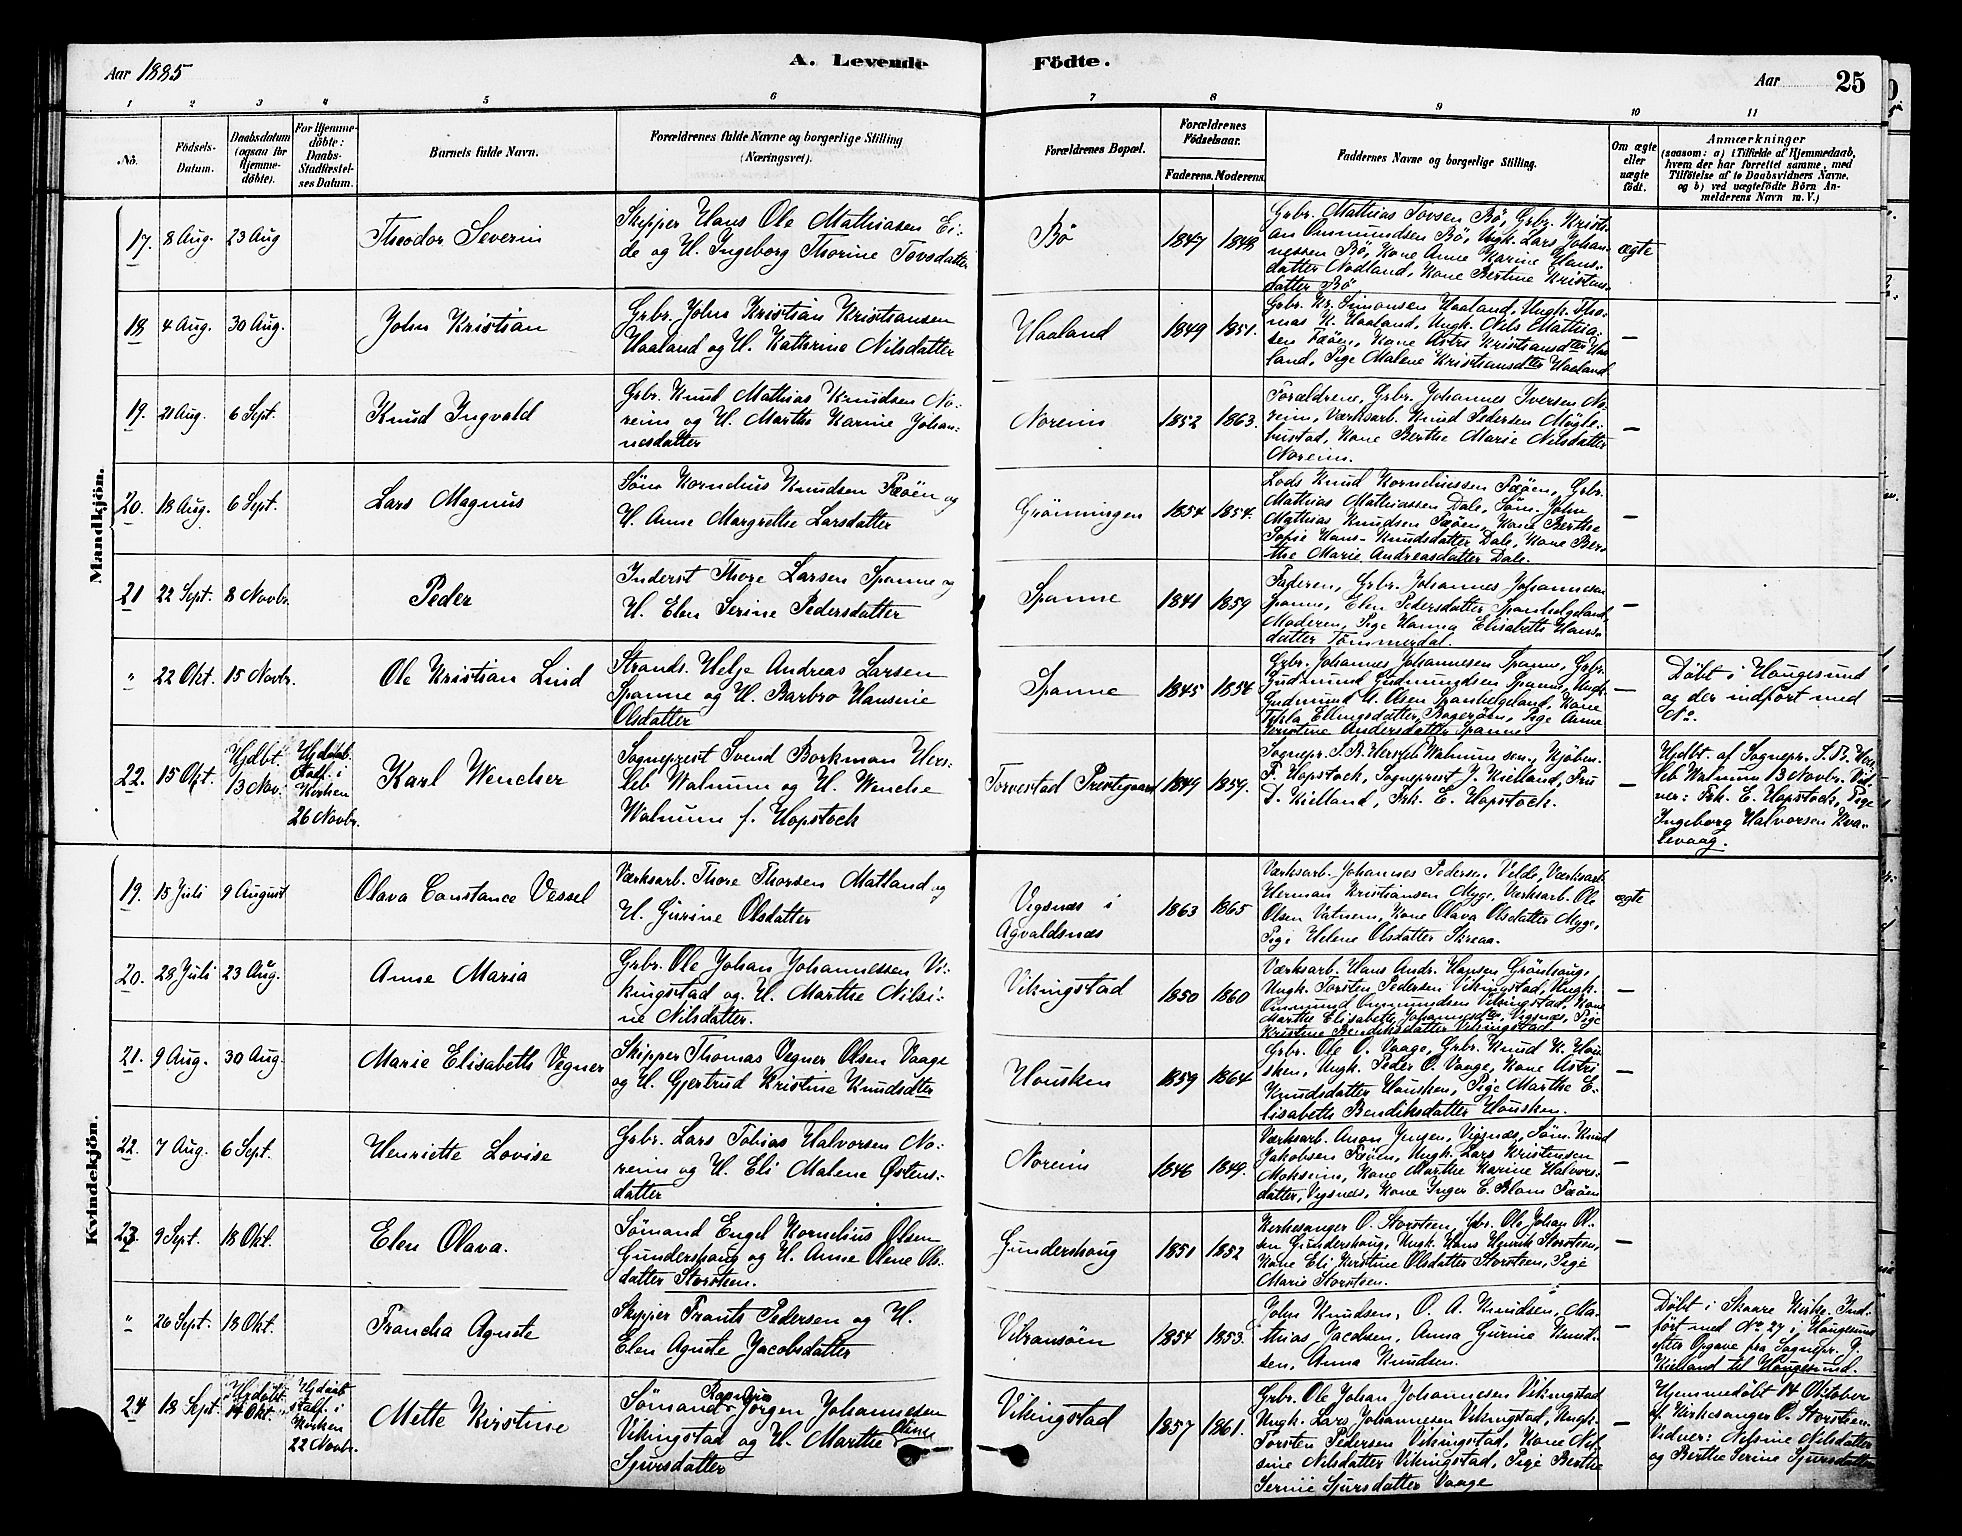 Aar 1885
A. Levende
Födte.
Aar
25
1 2 3 4 5 6 7 8 9 10 11
No.
Födsels-
Datum.
Daabsdatum
(ogsaa for
Hjemme-
döbte).
For Hjemme-
döbte:
Daabs-
Stadfæstel-
ses Datum.
Barnets fulde Navn.
Forældrenes fulde Navne og borgerlige Stilling
(Næringsvei).
Forældrenes Bopæl.
Forældrenes
Födselsaar.
Faderens. Moderens.
Faddernes Navne og borgerlige Stilling.
Om ægte
eller
uægte
født.
Anmærkninger
(saasom: a) i Tilfælde af Hjemmedaab,
hvem der har forrettet samme, med
Tilföielse af to Daabsvidners Navne.
og b) ved uægtefödte Börn An-
melderens Navn m. V.)
Mandkjön.
17. 8 Aug. 23 Aug
Theodor Severin
Skipper Hans Ole Mathiasen Ei-
de og H. Ingeborg Thorine Tovsdatter
Bö
1847 1848
Grbr. Mathias Tovsen Bö, Grbr. Kristi-
an Omundsen Bö, Ungk. Lars Johan-
nessen Bö, Kone Anne Karine Hans-
datter Nodland, Kone Bertine Kristens-
datter Bö
ægte
18 4 Aug. 30 Aug.
John Kristian
Grbr. John Kristian Kristiansen
Haaland og H. Kathrine Nilsdatter
Haaland
1849 1851.
Grbr. Kr. Simonsen Haaland, Ungk. Tho-
mas K. Haaland, Ungk. Nils Mathia-
sen Fæöen, Kone Astri Kristiansdter Haa-
land, Pige Malene Kristiansdter Haaland
—
19. 21 Aug. 6 Sept.
Knud Ingvald
Grbr. Knud Mathias Knudsen No-
reim og H. Marthe Karine Johan-
nesdatter
Noreim
1852 1863.
Forældrene, Grbr. Johannes Iversen No-
reim, Værksarb. Knud Pedersen Mögle-
bustad, Kone Berthe Marie Nilsdatter
Noreim.
—
20. 18 Aug. 6 Sept.
Lars Magnus
Söm. Kornelius Knudsen Fæöen og
H. Anne Margrethe Larsdatter
Grönningen
1854 1854.
Lods Knud Korneliussen Fæöen, Grbr.
Mathias Mathiassen Dale, Söm. John
Mathias Knudsen Fæöen, Kone Berthe
Sofie Hans-Knudsdatter Dale, Kone Ber-
the Marie Andreasdatter Dale.
—
21 22 Sept. 8 Novbr.
Peder
Inderst Thore Larsen Spanne og
H. Elen Serine Pedersdatter
Spanne
1841 1859
Faderen, Grbr. Johannes Johannesen
Spanne, Elen Pedersdatter Spanhelgeland,
Moderen, Pige Hanna Elisabeth Hans-
datter Tömmerdal.
—
" 22 Okt. 15 Novbr.
Ole Kristian Lind
Strands. Helje Andreas Larsen
Spanne og H. Barbro Hansine
Olsdatter
Spanne
1845 1856
Grbr. Johannes Johannesen Spanne, Grbr.
Gudmund Gudmundsen Spanne, Ungk.
Gudmund G. Olsen Spanhelgeland, Kone
Thekla Ellingsdatter Bogeröen, Pige Anne
Kristine Andersdatter Spanne
—
Döbt i Haugesund
og der indfört med
No.
22. 15 Okt.
Hjdbt.
13 Nov.
Hjdaab
stadf. i
Kirken
26 Novbr.
Karl Wencher
Sogneprest Svend Borkman Hers-
leb Walnum og H. Wenche
Walnum f. Hopstock
Torvestad Prestegaard
1849 1859.
Sognepr. S. B. Hersleb Walnum sen., Kjöbm.
F. Hopstock, Sogneprest J. Kielland, Fru
D. Kielland, Frk. E. Hopstock.
—
Hjdbt. af Sognepr. S. B. Hers-
leb Walnum 13 Novbr. Vid-
ner: Frk. E. Hopstock, Pige
Ingeborg Halvorsen Kva-
levaag.
Kvindekjön.
19. 15 Juli 9 August
Olava Constance Vessel
Værksarb. Thore Thorsen Matland og
H. Gurine Olsdatter
Vigsnæs i
Agvaldsnæs
1863 1865
Værksarb. Johannes Pedersen Velde, Værksarb.
Herman Kristiansen Myge, Værksarb. Ole
Olsen Vatnem, Kone Olava Olsdatter Myge,
Pige Helene Olsdatter Skreaa.
ægte
20. 28 Juli 23 Aug.
Anne Maria
Grbr. Ole Johan Johannessen Vi-
kingstad og H. Marthe Nilsi-
ne Nilsdatter.
Vikingstad
1850 1860
Værksarb. Hans Andr. Hansen Grönhaug,
Ungk. Torsten Pedersen Vikingstad, Ungk.
Omund Omundsen Vikingstad, Kone
Marthe Elisabeth Johannesdter, Vigsnæs, Pige
Kristine Bendiksdatter Vikingstad
—
21. 9 Aug. 30 Aug.
Marie Elisabeth Vegner
Skipper Thomas Vegner Olsen Vaage
og H. Gjertrud Kristine Knudsdter
Housken
1859 1864
Grbr. Ole O. Vaage, Grbr. Knud K. Hou-
sken, Ungk. Peder O. Vaage, Kone Astri
Knudsdatter Housken, Pige Marthe E-
lisabeth Bendiksdatter Housken.
—
22. 7 Aug. 6 Sept.
Henriette Lovise
Grbr. Lars Tobias Halvorsen No-
reim og H. Eli Malene Östens-
datter
Noreim
1846 1849.
Værksarb. Anon Jensen, Vigsnæs, Söm. Knud
Jakobsen Fæöen, Ungk. Lars Kristensen
Mokseim, Kone Marthe Karine Halvors-
datter, Vigsnæs, Kone Inger E. Blom Fæöen
—
23. 9 Sept. 18 Okt.
Elen Olava.
Sömand Engel Kornelius Olsen
Gundershaug og H. Anne Olene Ols-
datter Storsteen.
Gundershaug
1851 1852
Kirkesanger O. Storsteen, Grbr. Ole Johan Ol-
sen Gundershaug, Ungk. Hans Henrik Storsteen,
Kone Eli Kirstine Olsdatter Storsteen, Pige
Marie Storsteen.
—
" 26 Sept. 18 Okt.
Francha Agnete
Skipper Frants Pedersen og H.
Elen Agnete Jacobsdatter
Vibransöen
1854 1853.
John Knudsen, O. A. Knudsen, Ma-
thias Jacobsen, Anna Gurine Knud-
sen, Anna Knudsen.
—
Döbt i Skaare Kirke. Ind-
fört med No 27 i Haugesund
efter Opgave fra Sognepr. J.
Kielland til Haugesund.
24 18 Sept.
Hjdöbt
14 Okt.
Hjdaab
stadf. i
Kirken
22 Novbr.
Mette Kirstine
Sömand Rasmus Jörgen Johannesen
Vikingstad og H. Marthe Oline
Sjursdatter
Vikingstad
1857 1861.
Grbr. Ole Johan Johannesen Vikingstad
Ungk. Lars Johannesen Vikingstad, Ungk.
Torsten Pedersen Vikingstad, Kone Nil-
sine Nilsdatter Vikingstad, Pige Berthe
Serine Sjursdatter Vaage
—
Hjemmedöbt 14 Oktober
af Kirkesanger O. Storsteen.
Vidner: Nilsine Nilsdatter
og Berthe Serine Sjursdatter